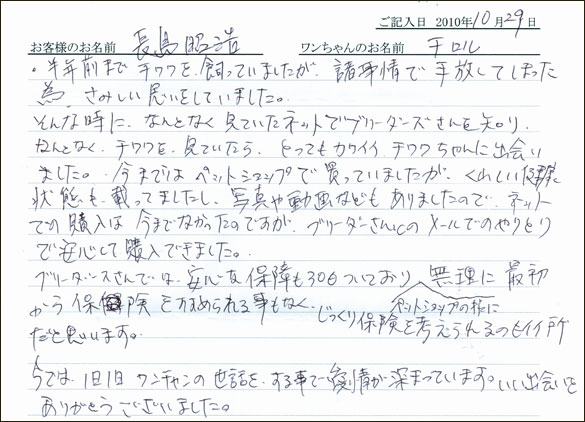 ご記入日 2010年10月29日
お客様のお名前 長島昭浩 ワンちゃんのお名前 チロル
・半年前まで チワワを、飼っていましたが、諸事情で手放してしまった
為、さみしい思いをしていました。
そんな時に、なんとなく見ていたネットでブリーダーズさんを知り、
なんとなく、チワワを、見ていたら、とってもカワイイ チワワちゃんに出会い
ました。今まではペットショップで買っていましたが、くわしい健康
状態も、載ってましたし、写真や動画などもありましたので、ネット
での購入は今までなかったのですが、ブリーダーさんとのメールでのやりとり
で安心して購入できました。
ブリーダーズさんでは、安心な保障も30日ついており 無理に最初
から保険をかけられる事もなく、じっくり保険を考えられるのもイイ所
ペットショップの様に
だと思います。
今では、1日1日 ワンチャンの世話を、する事で愛情が深まっています。いい出会いを
ありがとうございました。